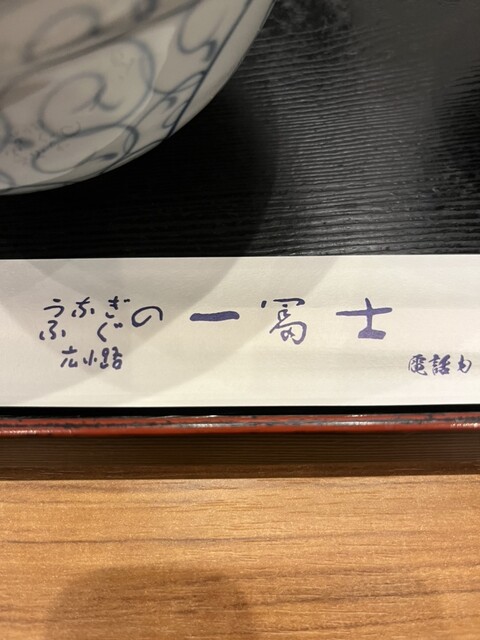 うなぎ
ふぐの
一富士
広小路
電話